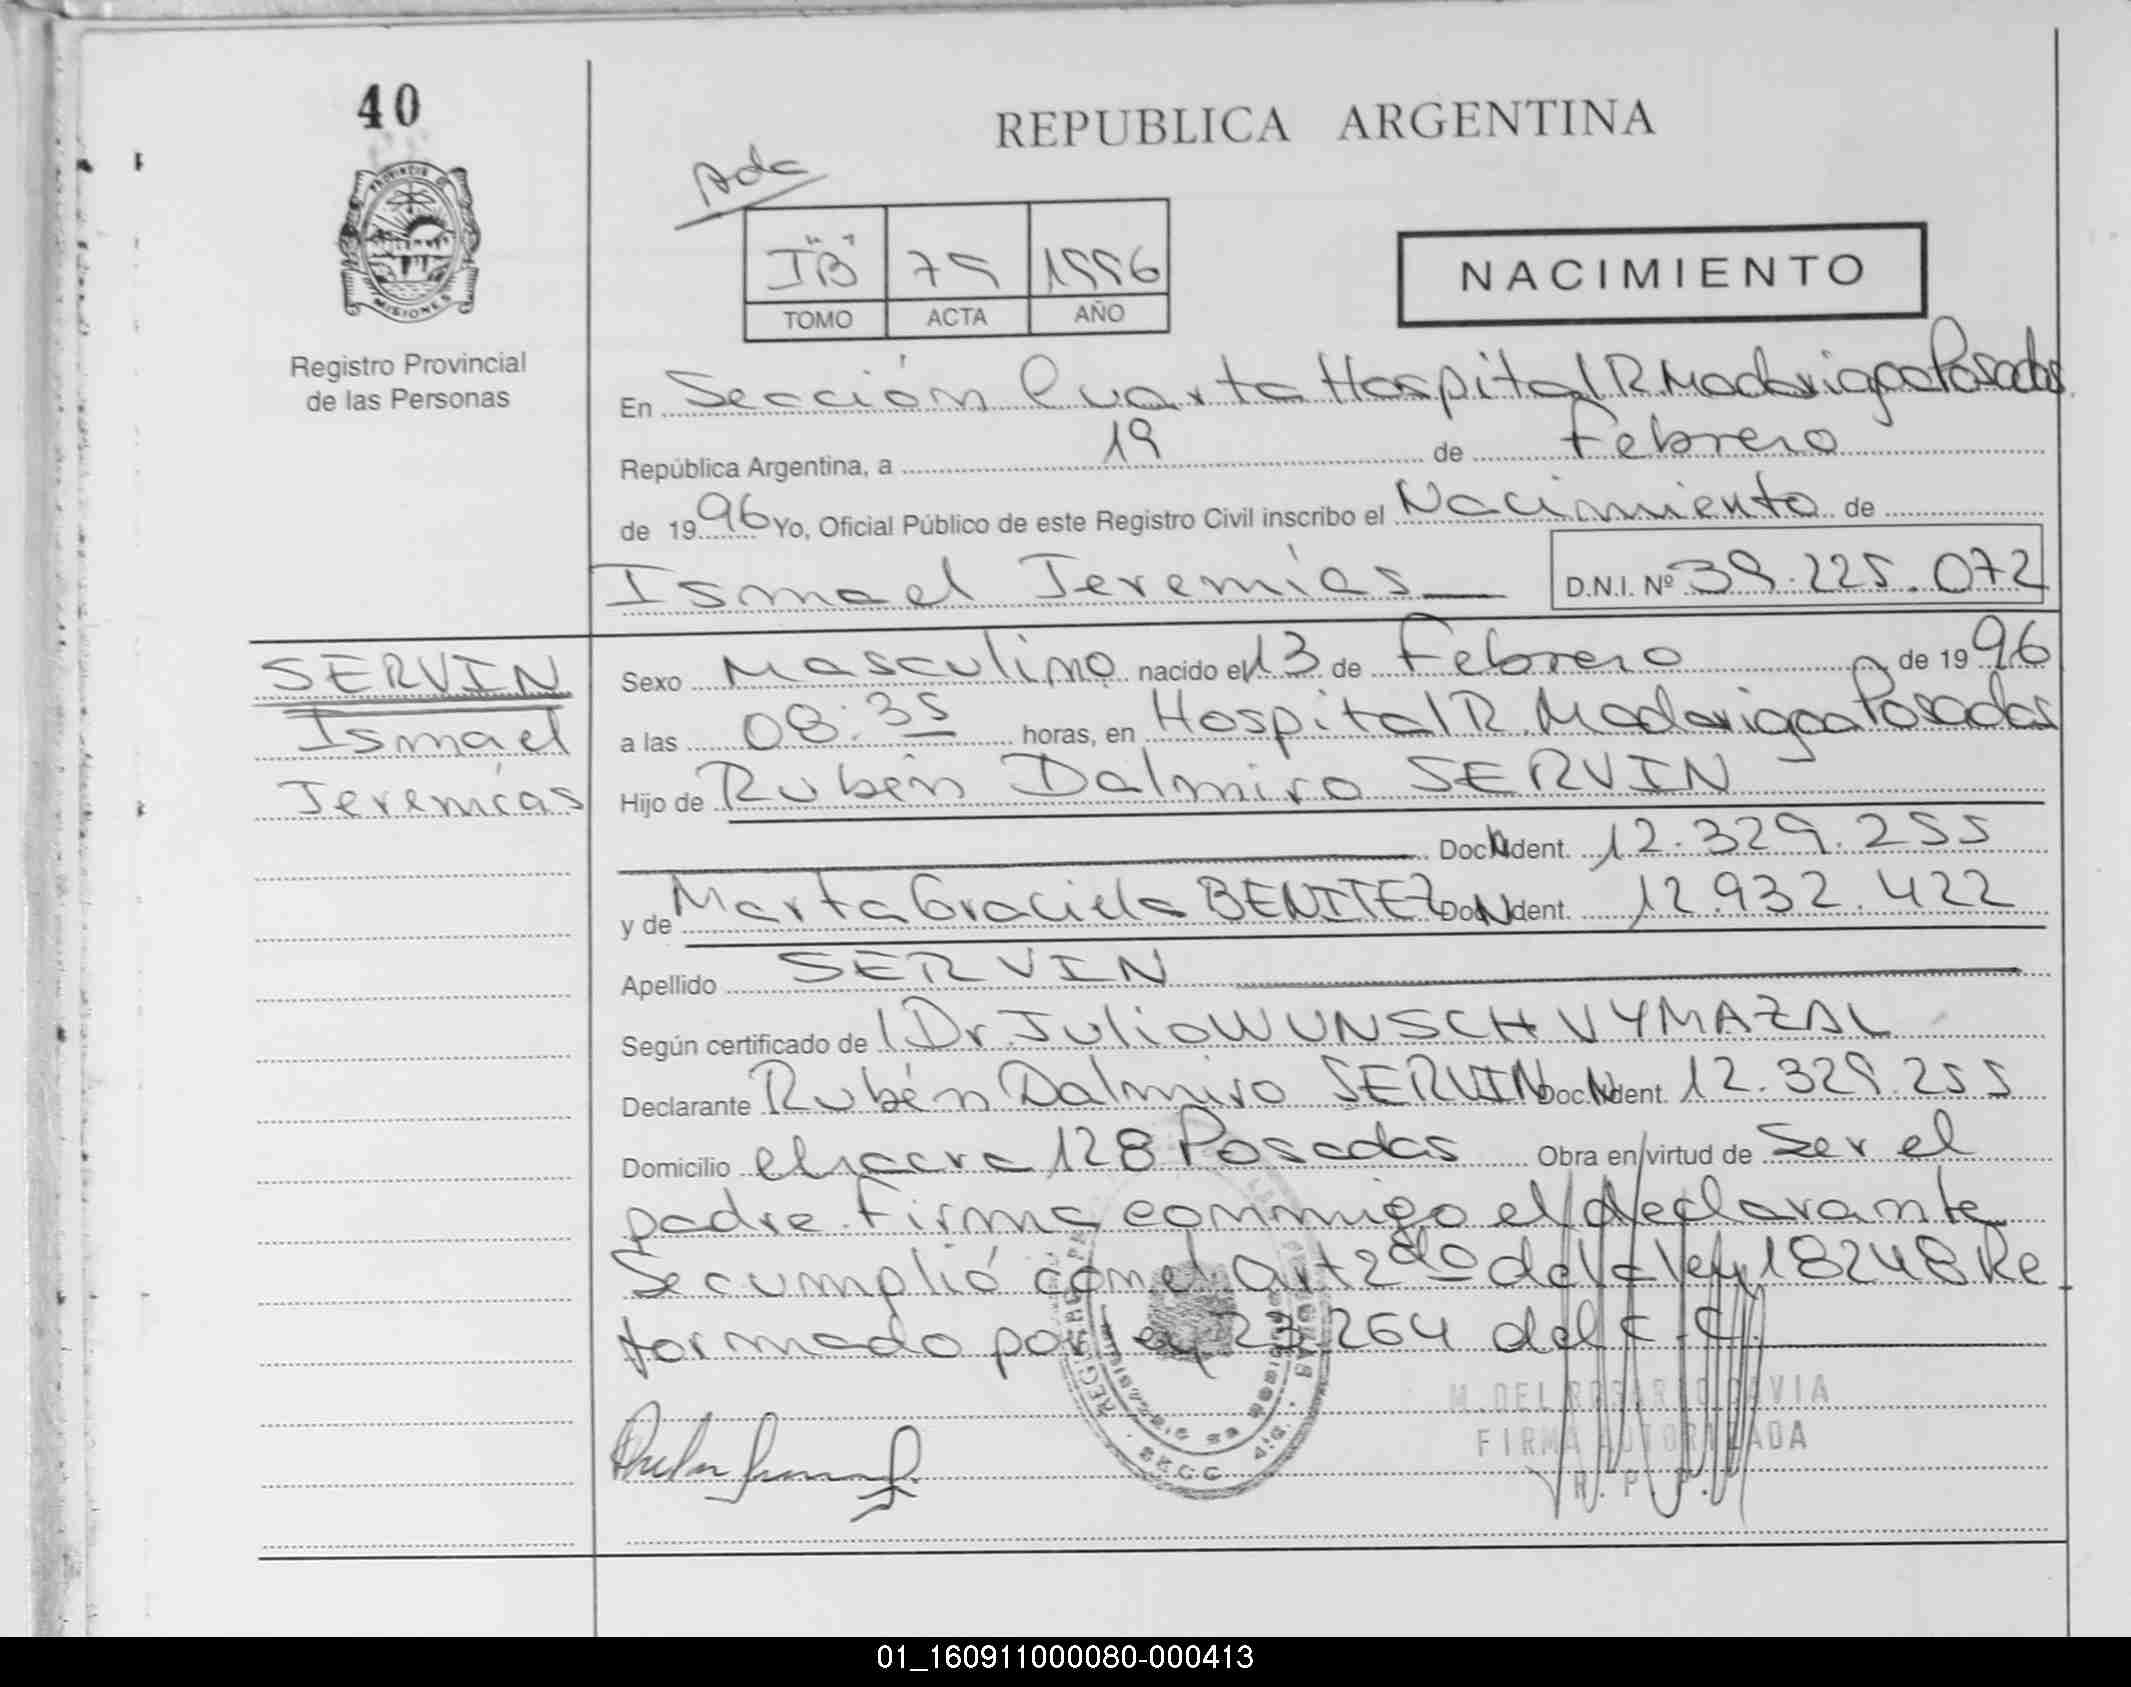 40
REPUBLICA ARGENTINA
Adc
"IB" 79 1996
TOMO ACTA AÑO
NACIMIENTO
PROVINCIA DE
MISIONES
Registro Provincial
de las Personas
En Sección Cuarta Hospital R. Madariaga Posadas
República Argentina, a 19 de Febrero
de 1996 Yo, Oficial Público de este Registro Civil inscribo el Nacimiento de
Ismael Jeremías D.N.I. Nº 39.225.072
SERVIN
Ismael
Jeremías
Sexo Masculino nacido el 13 de Febrero de 1996
a las 08:35 horas, en Hospital R. Madariaga Posadas
Hijo de Rubén Dalmiro SERVIN
Doc. Ident. 12.329.255
y de Marta Graciela BENITEZ Doc. Ident. 12.932.422
Apellido SERVIN
Según certificado de Dr. Julio WUNSCH VYMAZAL
Declarante Rubén Dalmiro SERVIN Doc. Ident. 12.329.255
Domicilio chacra 128 Posadas Obra en virtud de Ser el
padre. Firma conmigo el declarante
Se cumplió con el Art 2do de la ley 18248 Re
formado por ley 23264 del C.C.
M. DEL ROSARIO GAVIA
FIRMA AUTORIZADA
R. P. P.
01_160911000080-000413